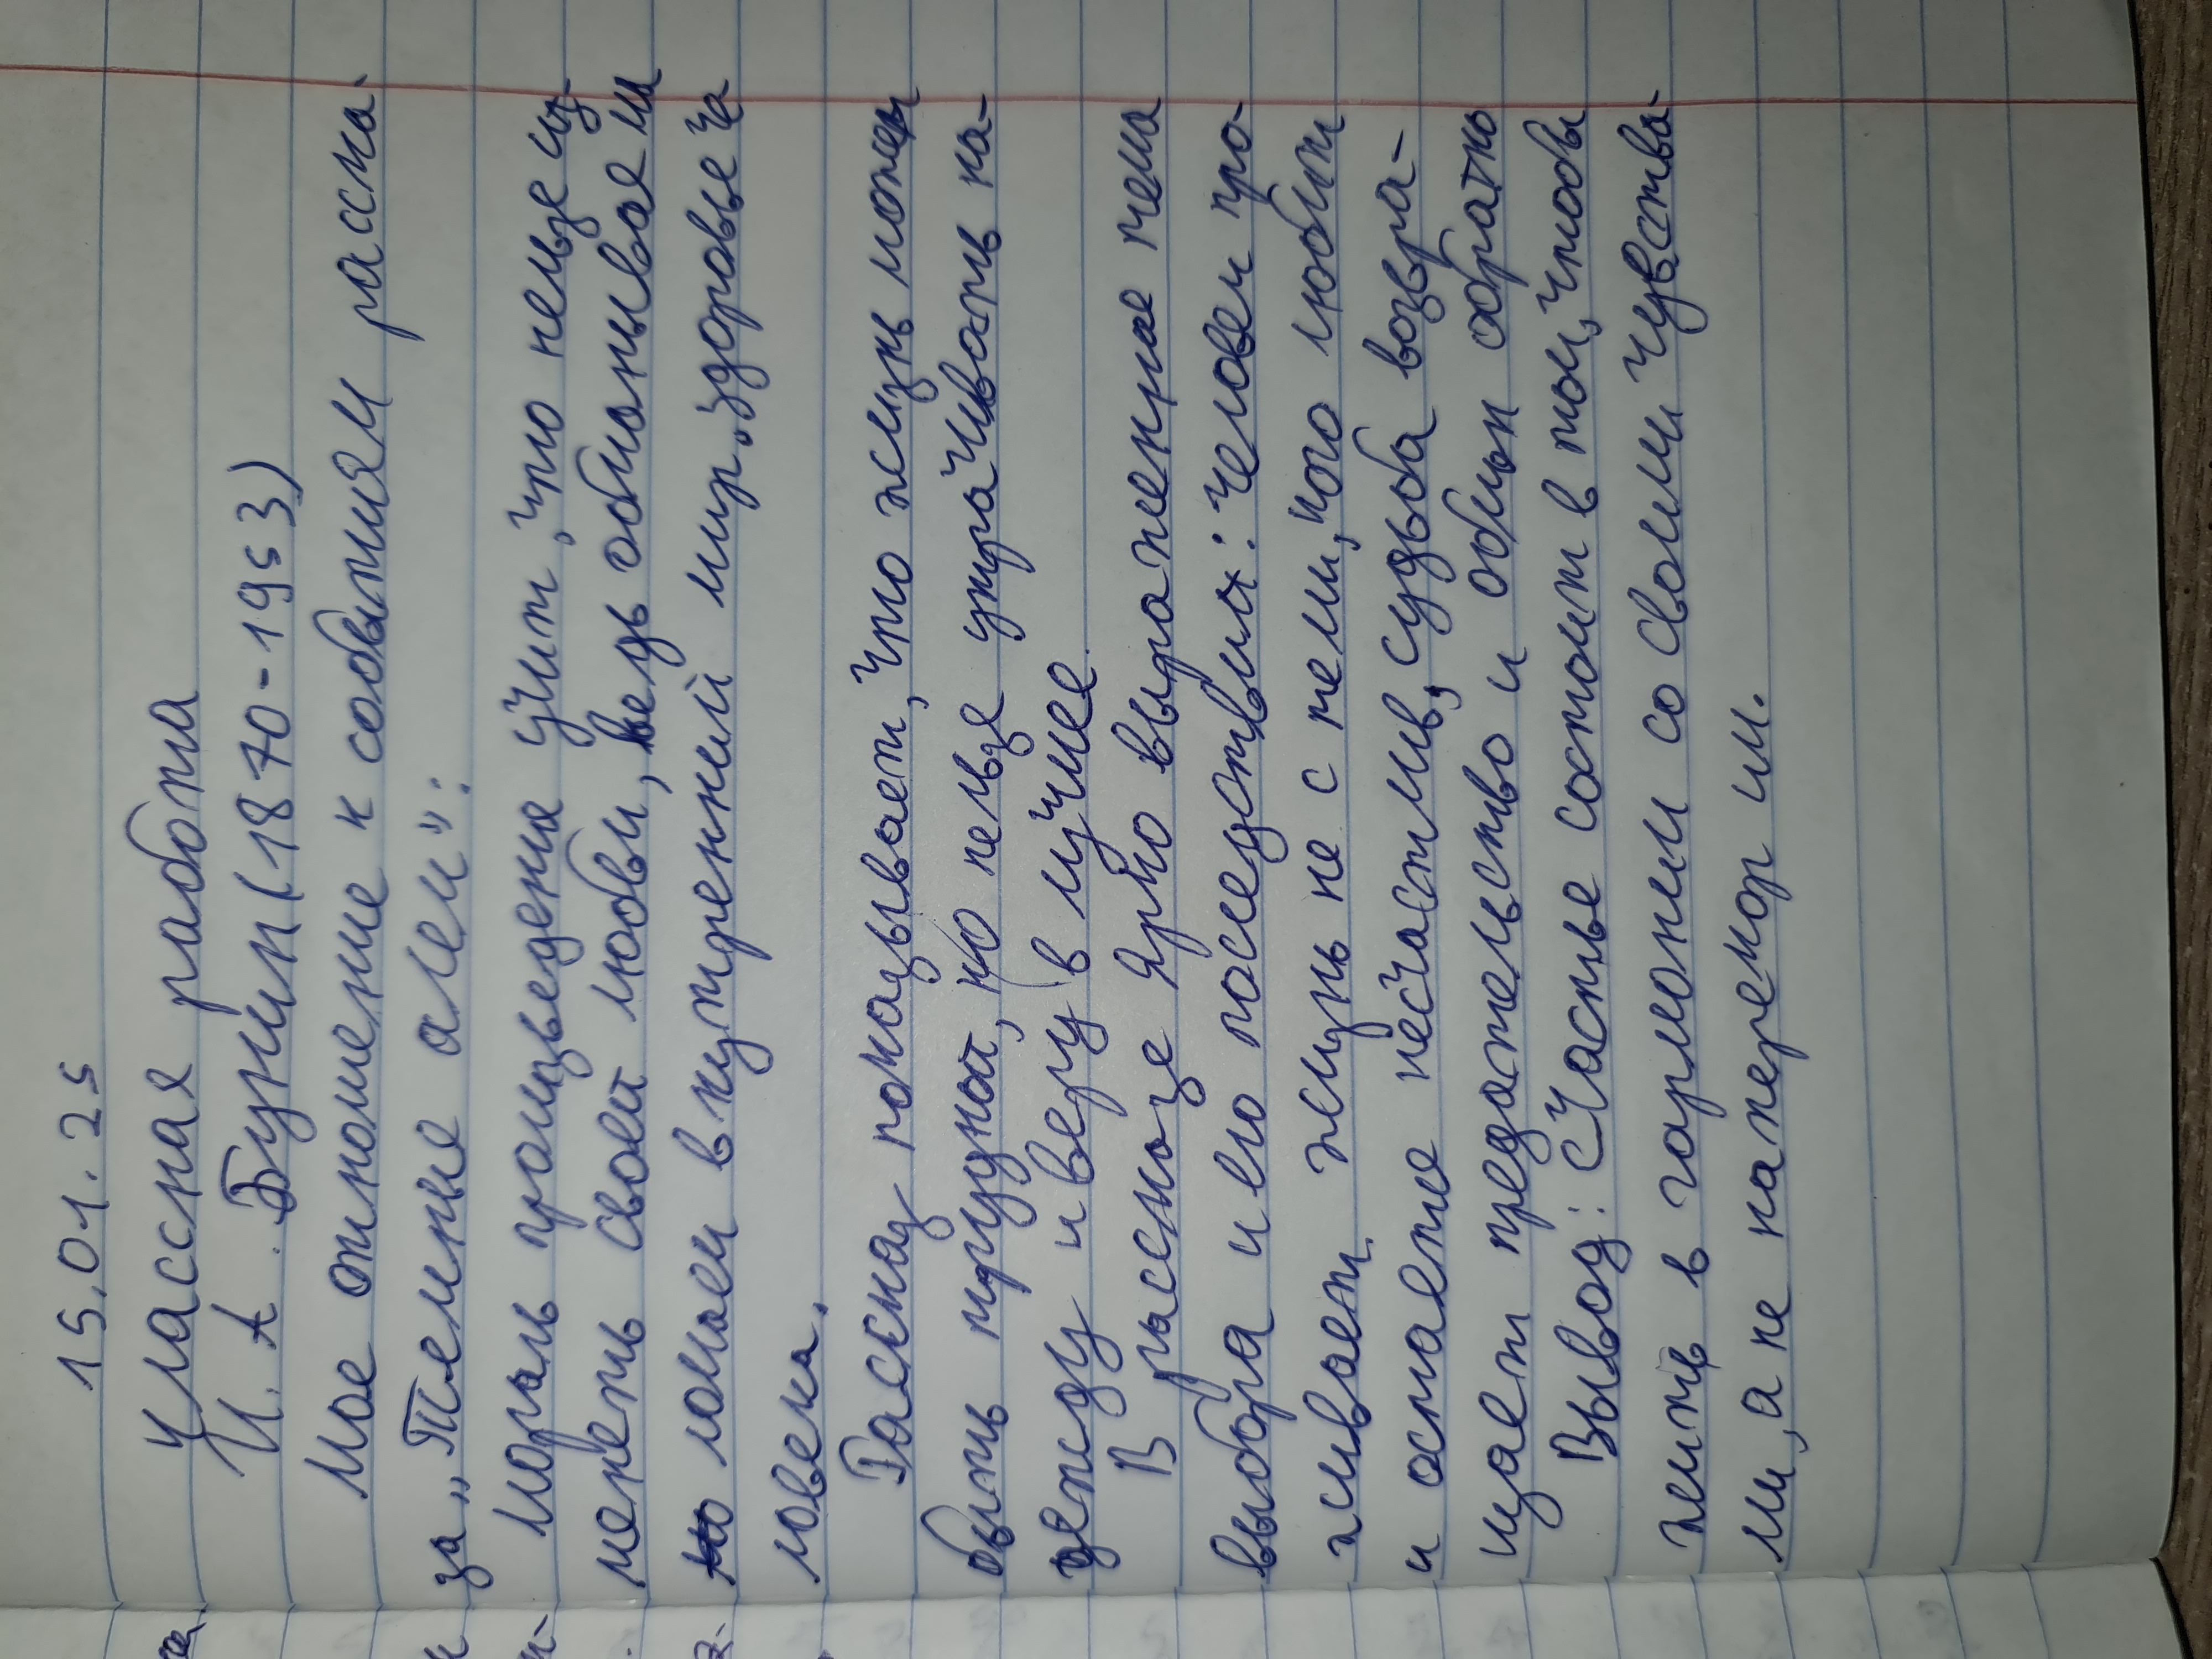 15.01.25
Классная работа
И. А. Бунин (1870-1953)
Мое отношение к событиям расска-
за „Темные алеи":
Мораль произведение учит, что нельзя из-
менять своей любви, ведь обманывая мы
ломаем внутренний мир, здоровье че
ловека.
Рассказ показывает, что жизнь может
быть трудной, но нельзя утрачивать на-
дежду и веру в лучшее.
В рассказе ярко выраженная тема
выбора и его последствия: человек про-
живает жизнь не с тем, кого любит
и остается несчастлив, судьба возвра-
щает предательство и обман обратно
Вывод: Счастье состоит в том, чтобы
жить в гармонии со своими чувства-
ми, а не наперекор им.